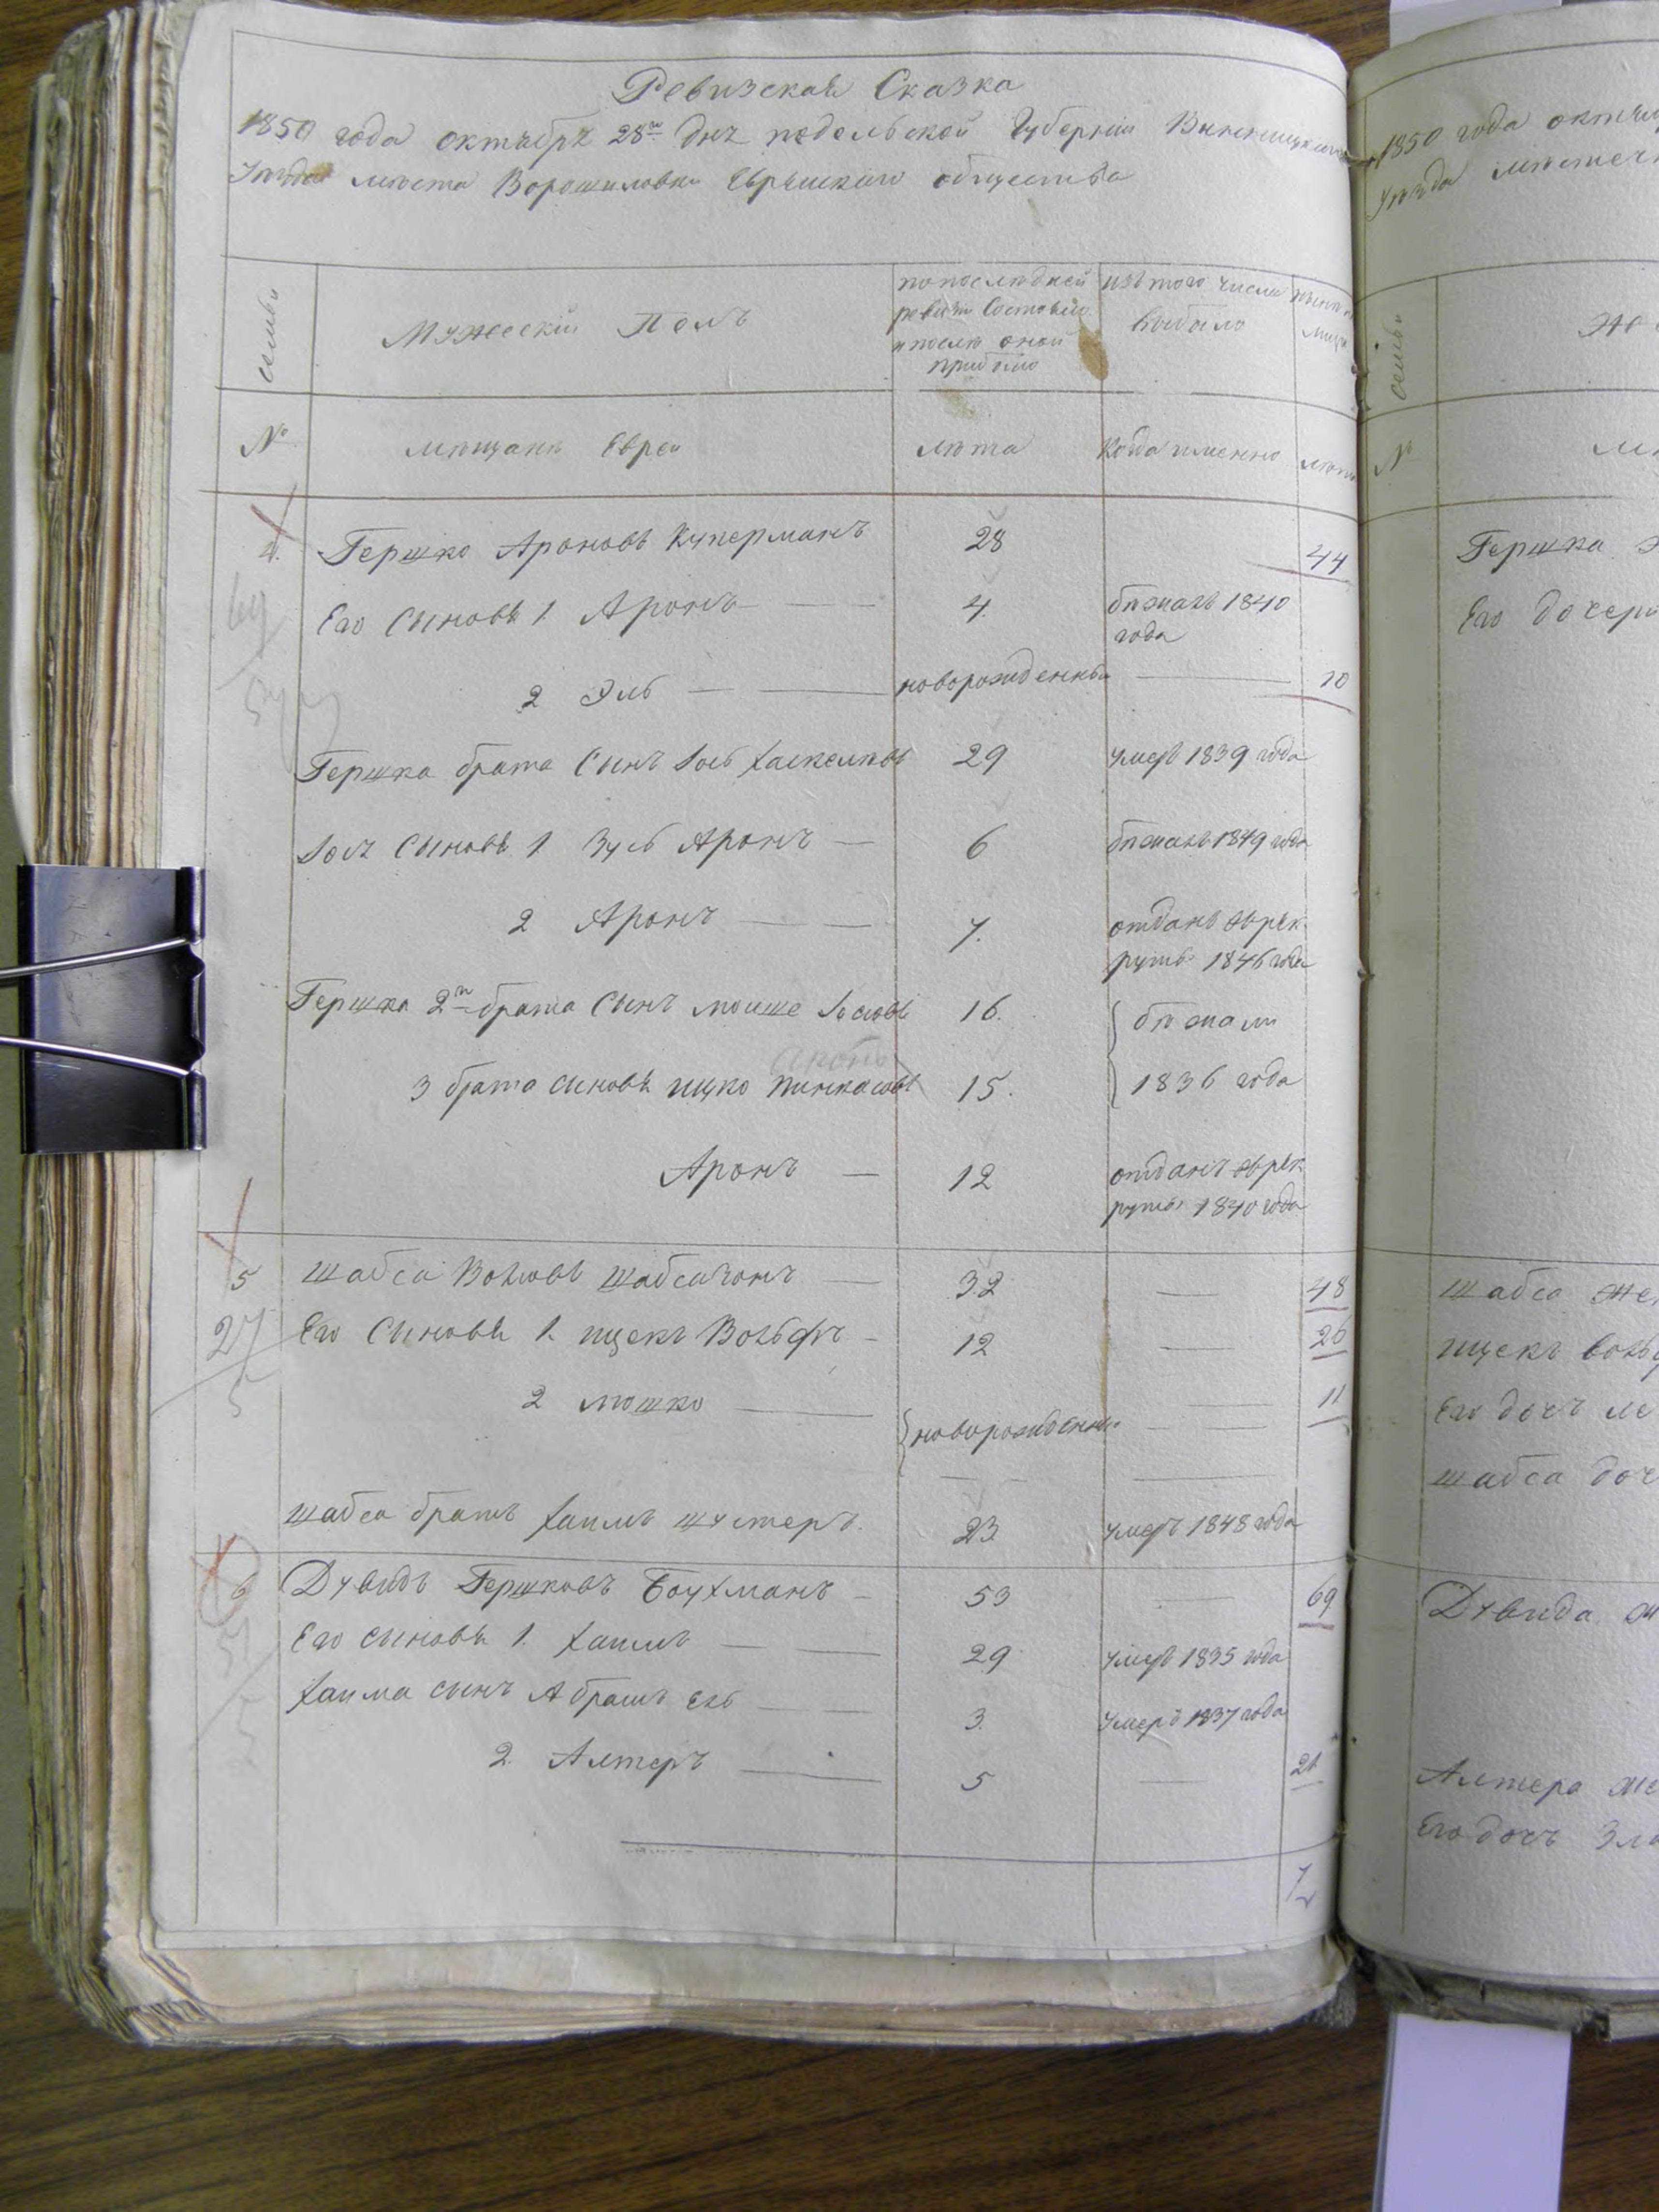 Ревизская Сказка
1850 года октября 28го дня подольской Губернии Винницкаго
Уѣзда мѣста Ворошиловки Еврейскаго общества
семьи
Мужеский Полъ
по послѣдней ревизіи Состояло и послѣ оной прибыло
изъ того числа выбыло
нынѣ
№
мѣщане Евреи
лѣта
Когда именно
лѣта
4. Гершко Ароновъ Куперманъ 28 44
Его Сыновья 1. Аронъ 4. бѣжалъ 1840 года
2 Эль новорожденный 10
Гершка брата Сынъ Іось Хаскелевъ 29 умеръ 1839 года
Іося Сыновья 1. Зусь Аронъ 6 бѣжалъ 1849 года
2 Аронъ 7. отданъ въ рекруты 1846 года
Гершка 2го брата Сынъ Мошке Іосіовъ 16.
{ бѣжали
3 брата сыновья ицко Пинкасовъ 15. 1836 года
Аронъ 12 отданъ въ рекруты 1840 года
5 Шабса Вольовъ Шабсазонъ 32 48
27
Его Сыновья 1. ицекъ Вольфъ 12 26
5
2 мошко } новорожденны 11
Шабса братъ Хаимъ Шустеръ. 23 умеръ 1848 года
6 Дувидъ Гершковъ Боухманъ 53 69
Его сыновья 1. Хаимъ 29 умеръ 1835 года
Хаима сынъ Абрамъ Екь 3. Умеръ 1837 года
2. Алтеръ 5 21
7
1850 года октяб
Уѣзда мѣстеч
семьи
Же
№
Гершка
Его дочери
Шабса же
ицекъ воль
Его дочъ
Шабса доч
Дувида
Алтера же
Его дочъ Зла